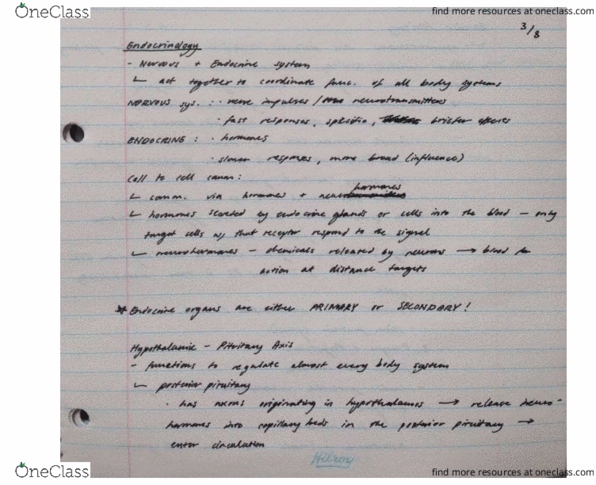 OneClass
find more resources at oneclass.com
3/8
Endocrinology
- Nervous + Endocrine system
↳ act together to coordinate func. of all body systems
NERVOUS sys. : · nerve impulses / neurotransmitters
· fast responses, specific, briefer effects
ENDOCRINE : · hormones
· slower responses, more broad (influence)
Cell to cell comm:
↳ comm. via hormones + neurohormones
↳ hormones secreted by endocrine glands or cells into the blood — only
target cells w/ that receptor respond to the signal
↳ neurohormones - chemicals released by neurons → blood for
action at distance targets
* Endocrine organs are either PRIMARY or SECONDARY!
Hypothalamic - Pituitary Axis
- functions to regulate almost every body system
↳ posterior pituitary
· has axons originating in hypothalamus → release neuro-
hormones into capillary beds in the posterior pituitary →
enter circulation
Hilroy
OneClass
find more resources at oneclass.com